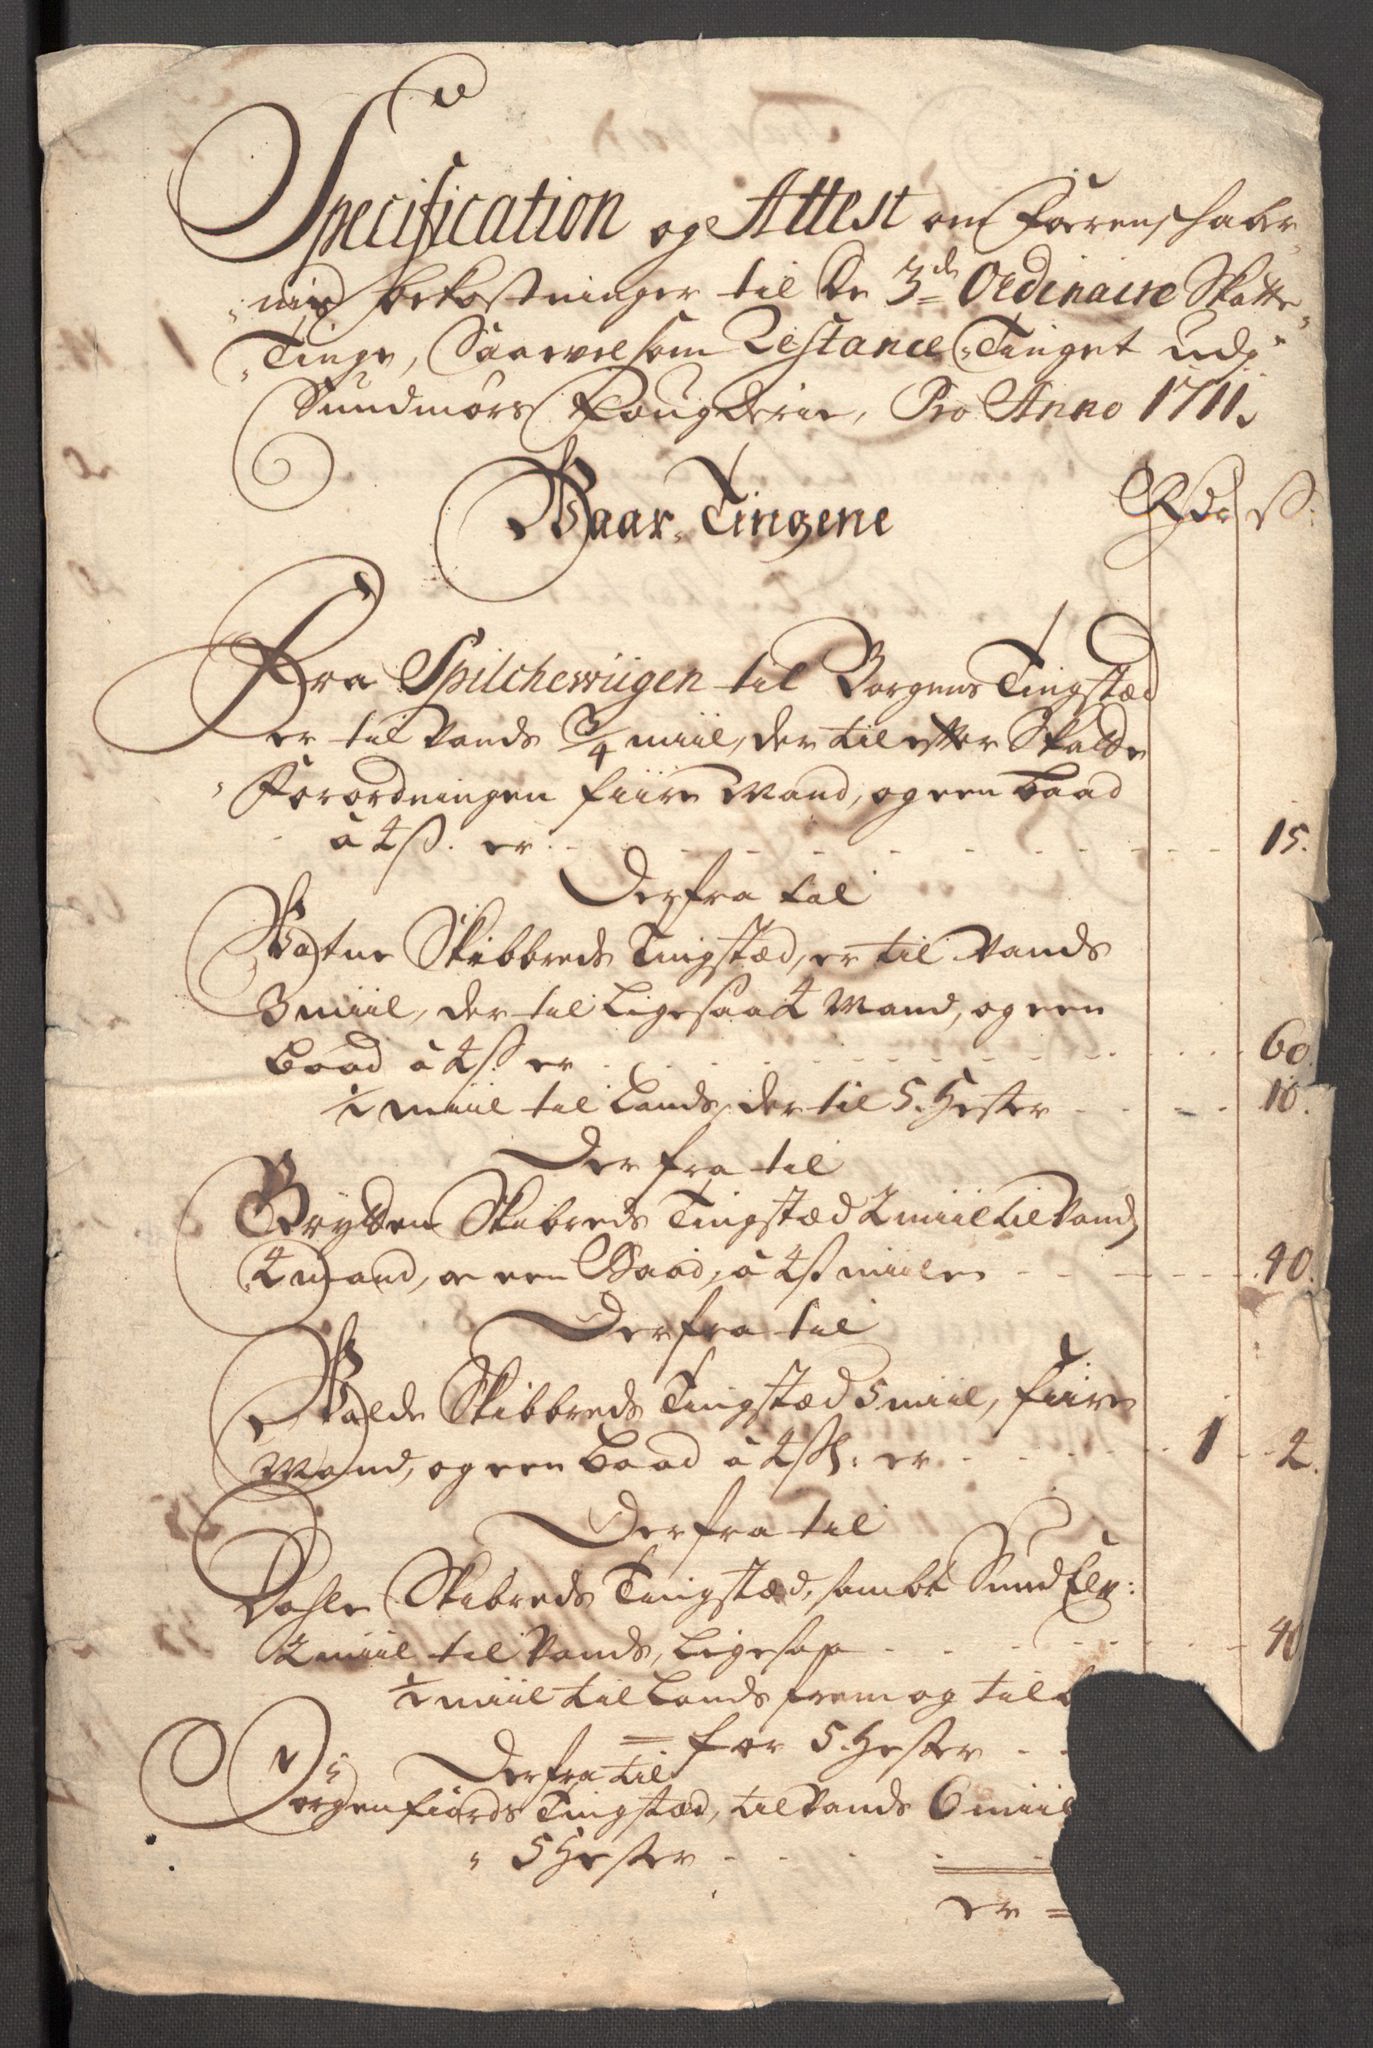 Specification og Attest om Förenschabr-
nis bekostninger til De 3de Ordinaire Skatte-
Tinge, Saavelsom Restance-Tinget udj
Sundmörs Fougderie, Pro Anno 1711.
Vaar-Tingene
Rdr ß:
Fra Spilchewiigen til Borgens Tingstæd
er til Vands 3/4 miil, der til efter Skatte
Forordningen fiire Mand, og een baad
à 4 ß. er - 15.
Derfra til
Vatne Skibbreds Tingstæd, er til Vands
3 miil, der til ligesaa 4 Mand, og een
baad à 4 ß er - 60.
1/2 miil til Lands, der til 5. Hester - 10.
Der fra til
Grytten Skibreds Tingstæd 2 miil til Vands
4 mand, oc een Baad, à 4 ß miilen - 40.
Derfra til
Valde Skibbreds Tingstæd 5 miil, fiire
Mand, og een baad à 4 ß: er - 1 - 2.
Derfra til
Dahle Skibreds Tingstæd, sambt Sund Elv:
2 miil til Vands, ligesaa - 40
1/2 miil til Lands frem og til
= for 5. Hester
Derfra til
Jörgenfiords Tingstæd, til Vands 6 miil
" 5 Hester
er =